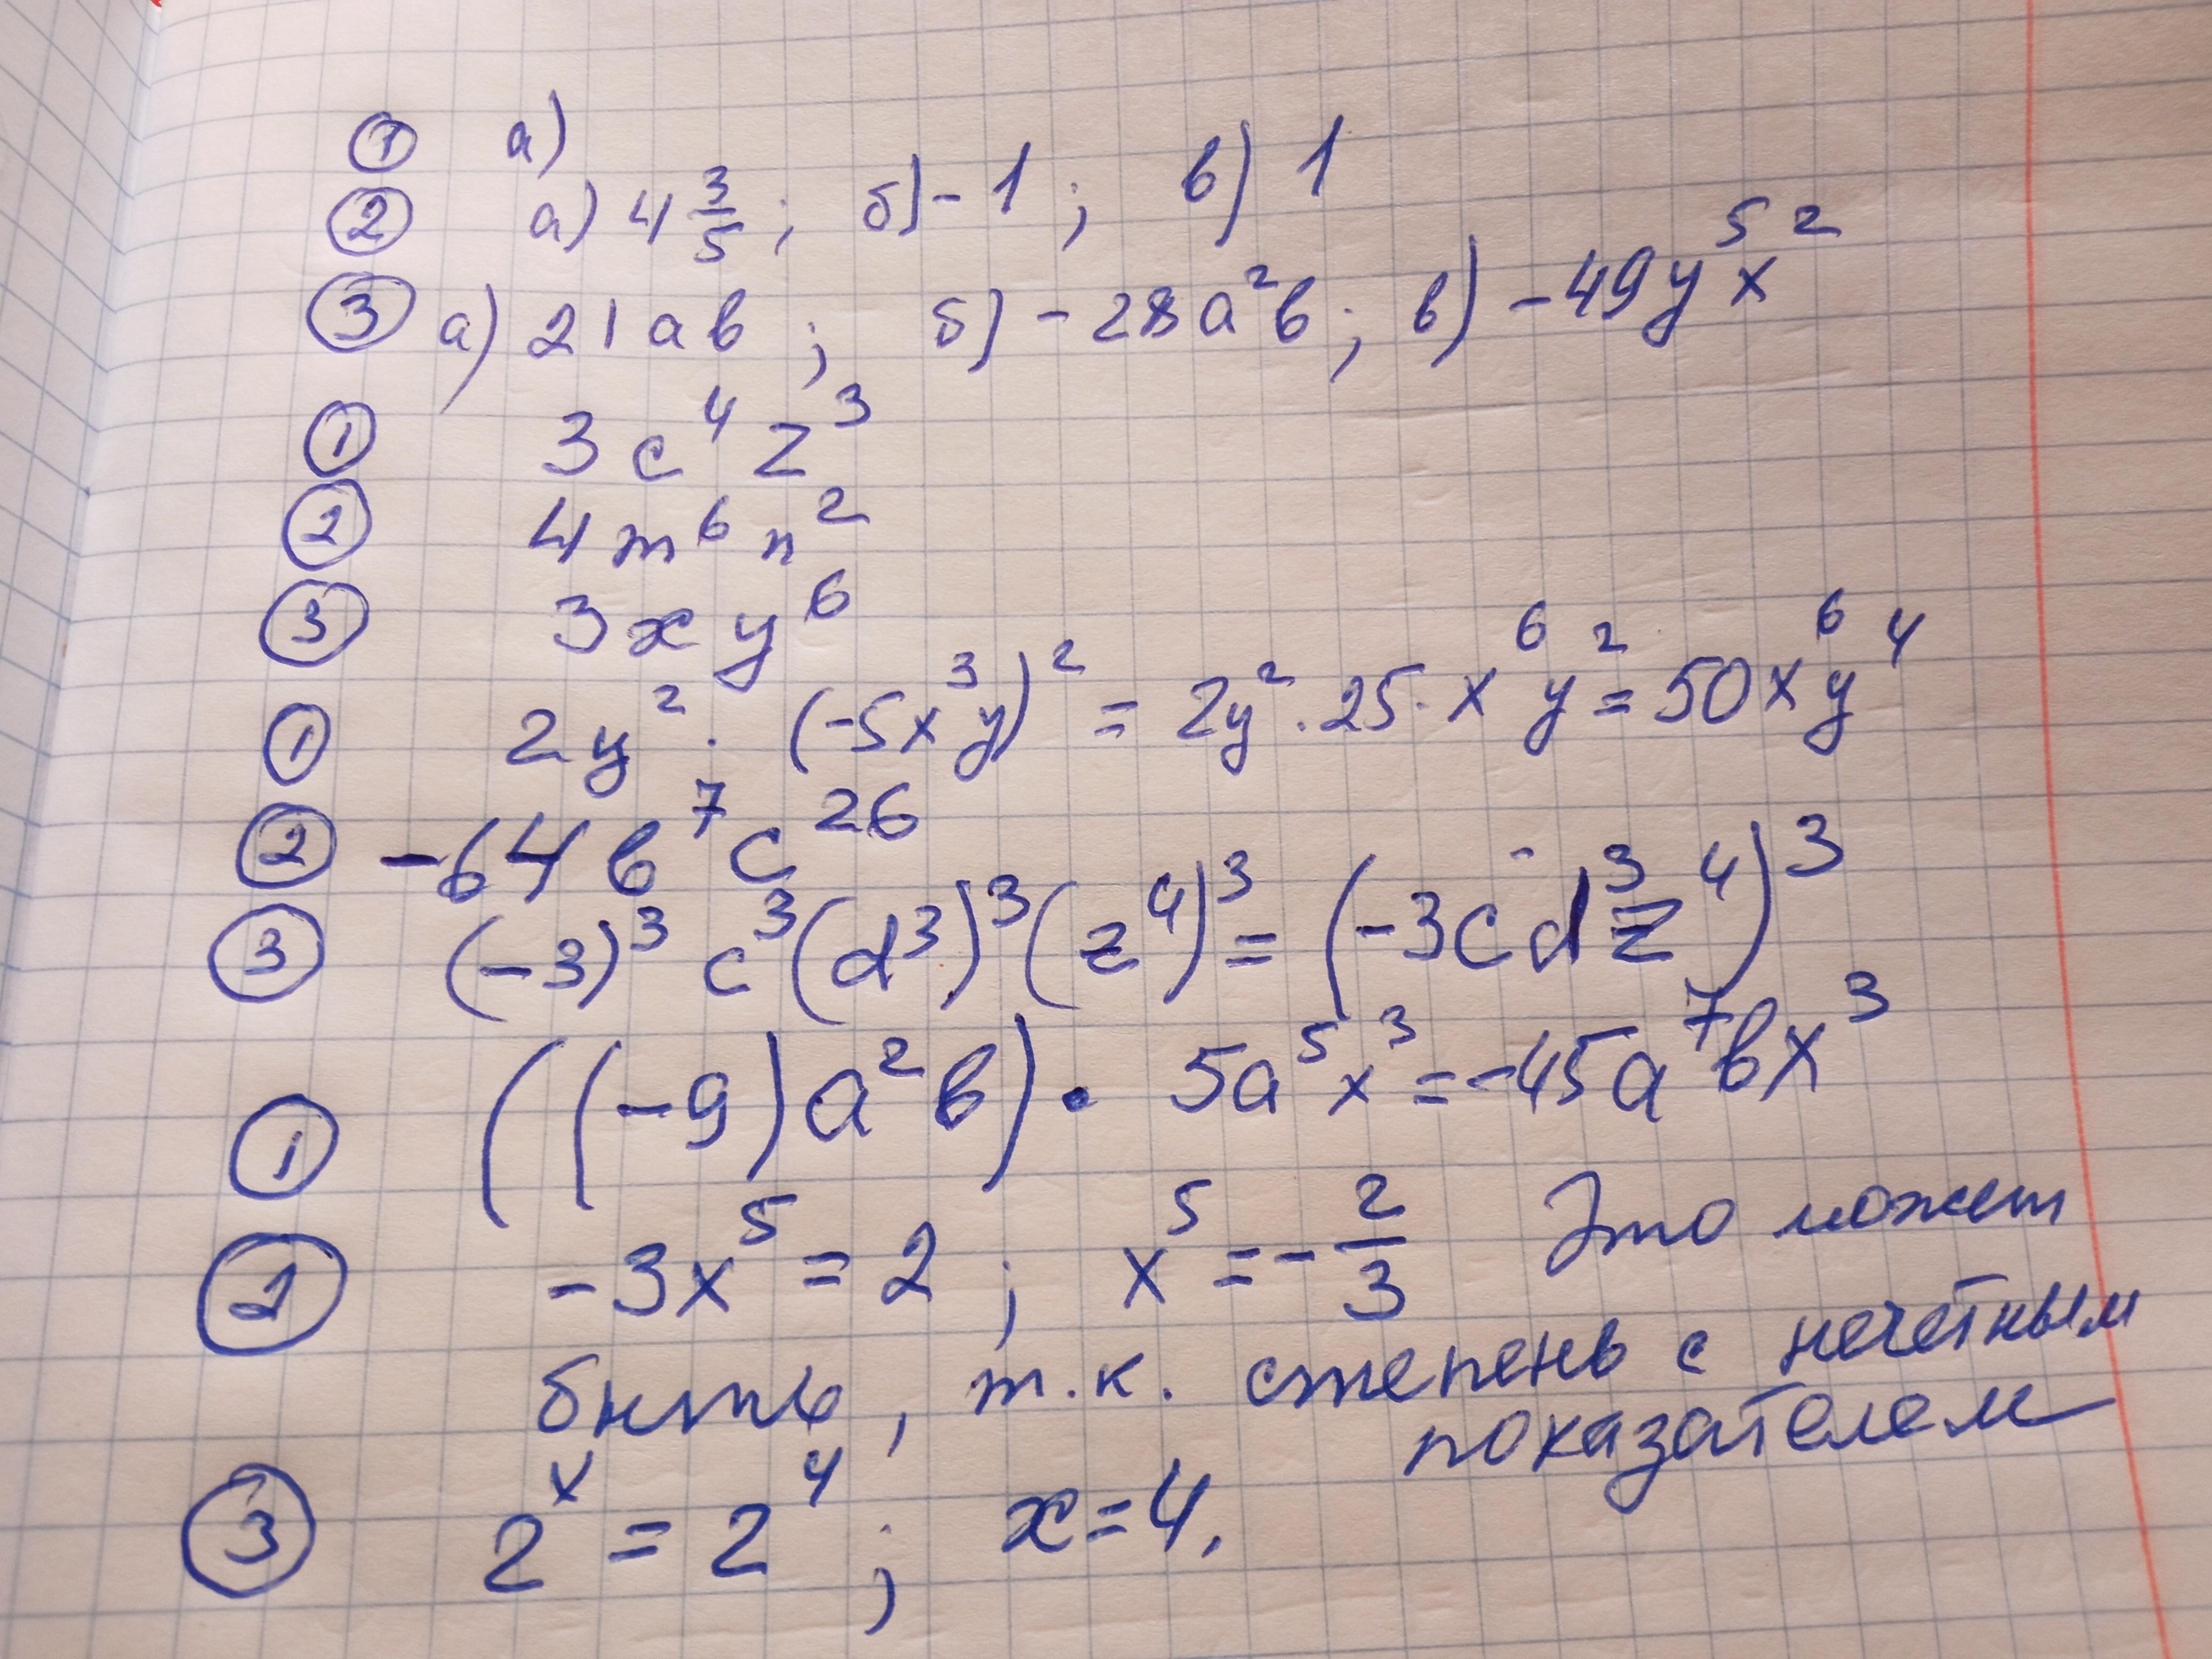 ① а)
② а) 4 3/5 ; б) - 1 ; в) 1
③ а) 21ав ; б) - 28а²в ; в) - 49y⁵x²
① 3c⁴z³
② 4m⁶n²
③ 3xy⁶
① 2y² · (-5x³y)² = 2y² · 25 · x⁶y² = 50x⁶y⁴
② -64в⁷c²⁶
③ (-3)³c³(d³)³(z⁴)³ = (-3cd³z⁴)³
① ((-9)a²b) · 5a⁵x³ = -45a⁷bx³
② -3x⁵ = 2 ; x⁵ = - 2/3 Это может
быть, т.к. степень с нечётным
показателем
③ 2ˣ = 2⁴ ; x = 4.